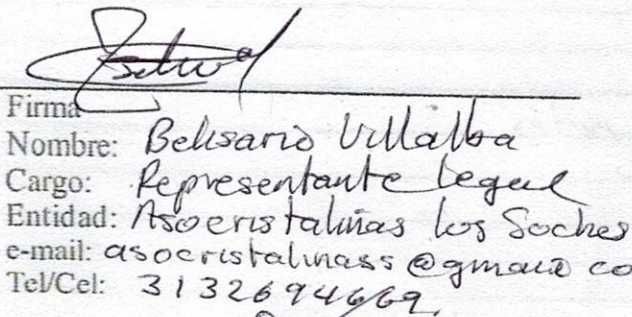 Firma
Nombre: Belisario Villalba
Cargo: Representante Legal
Entidad: Asocristalinas los Soches
e-mail: asocristalinass@gmail co
Tel/Cel: 3132694669